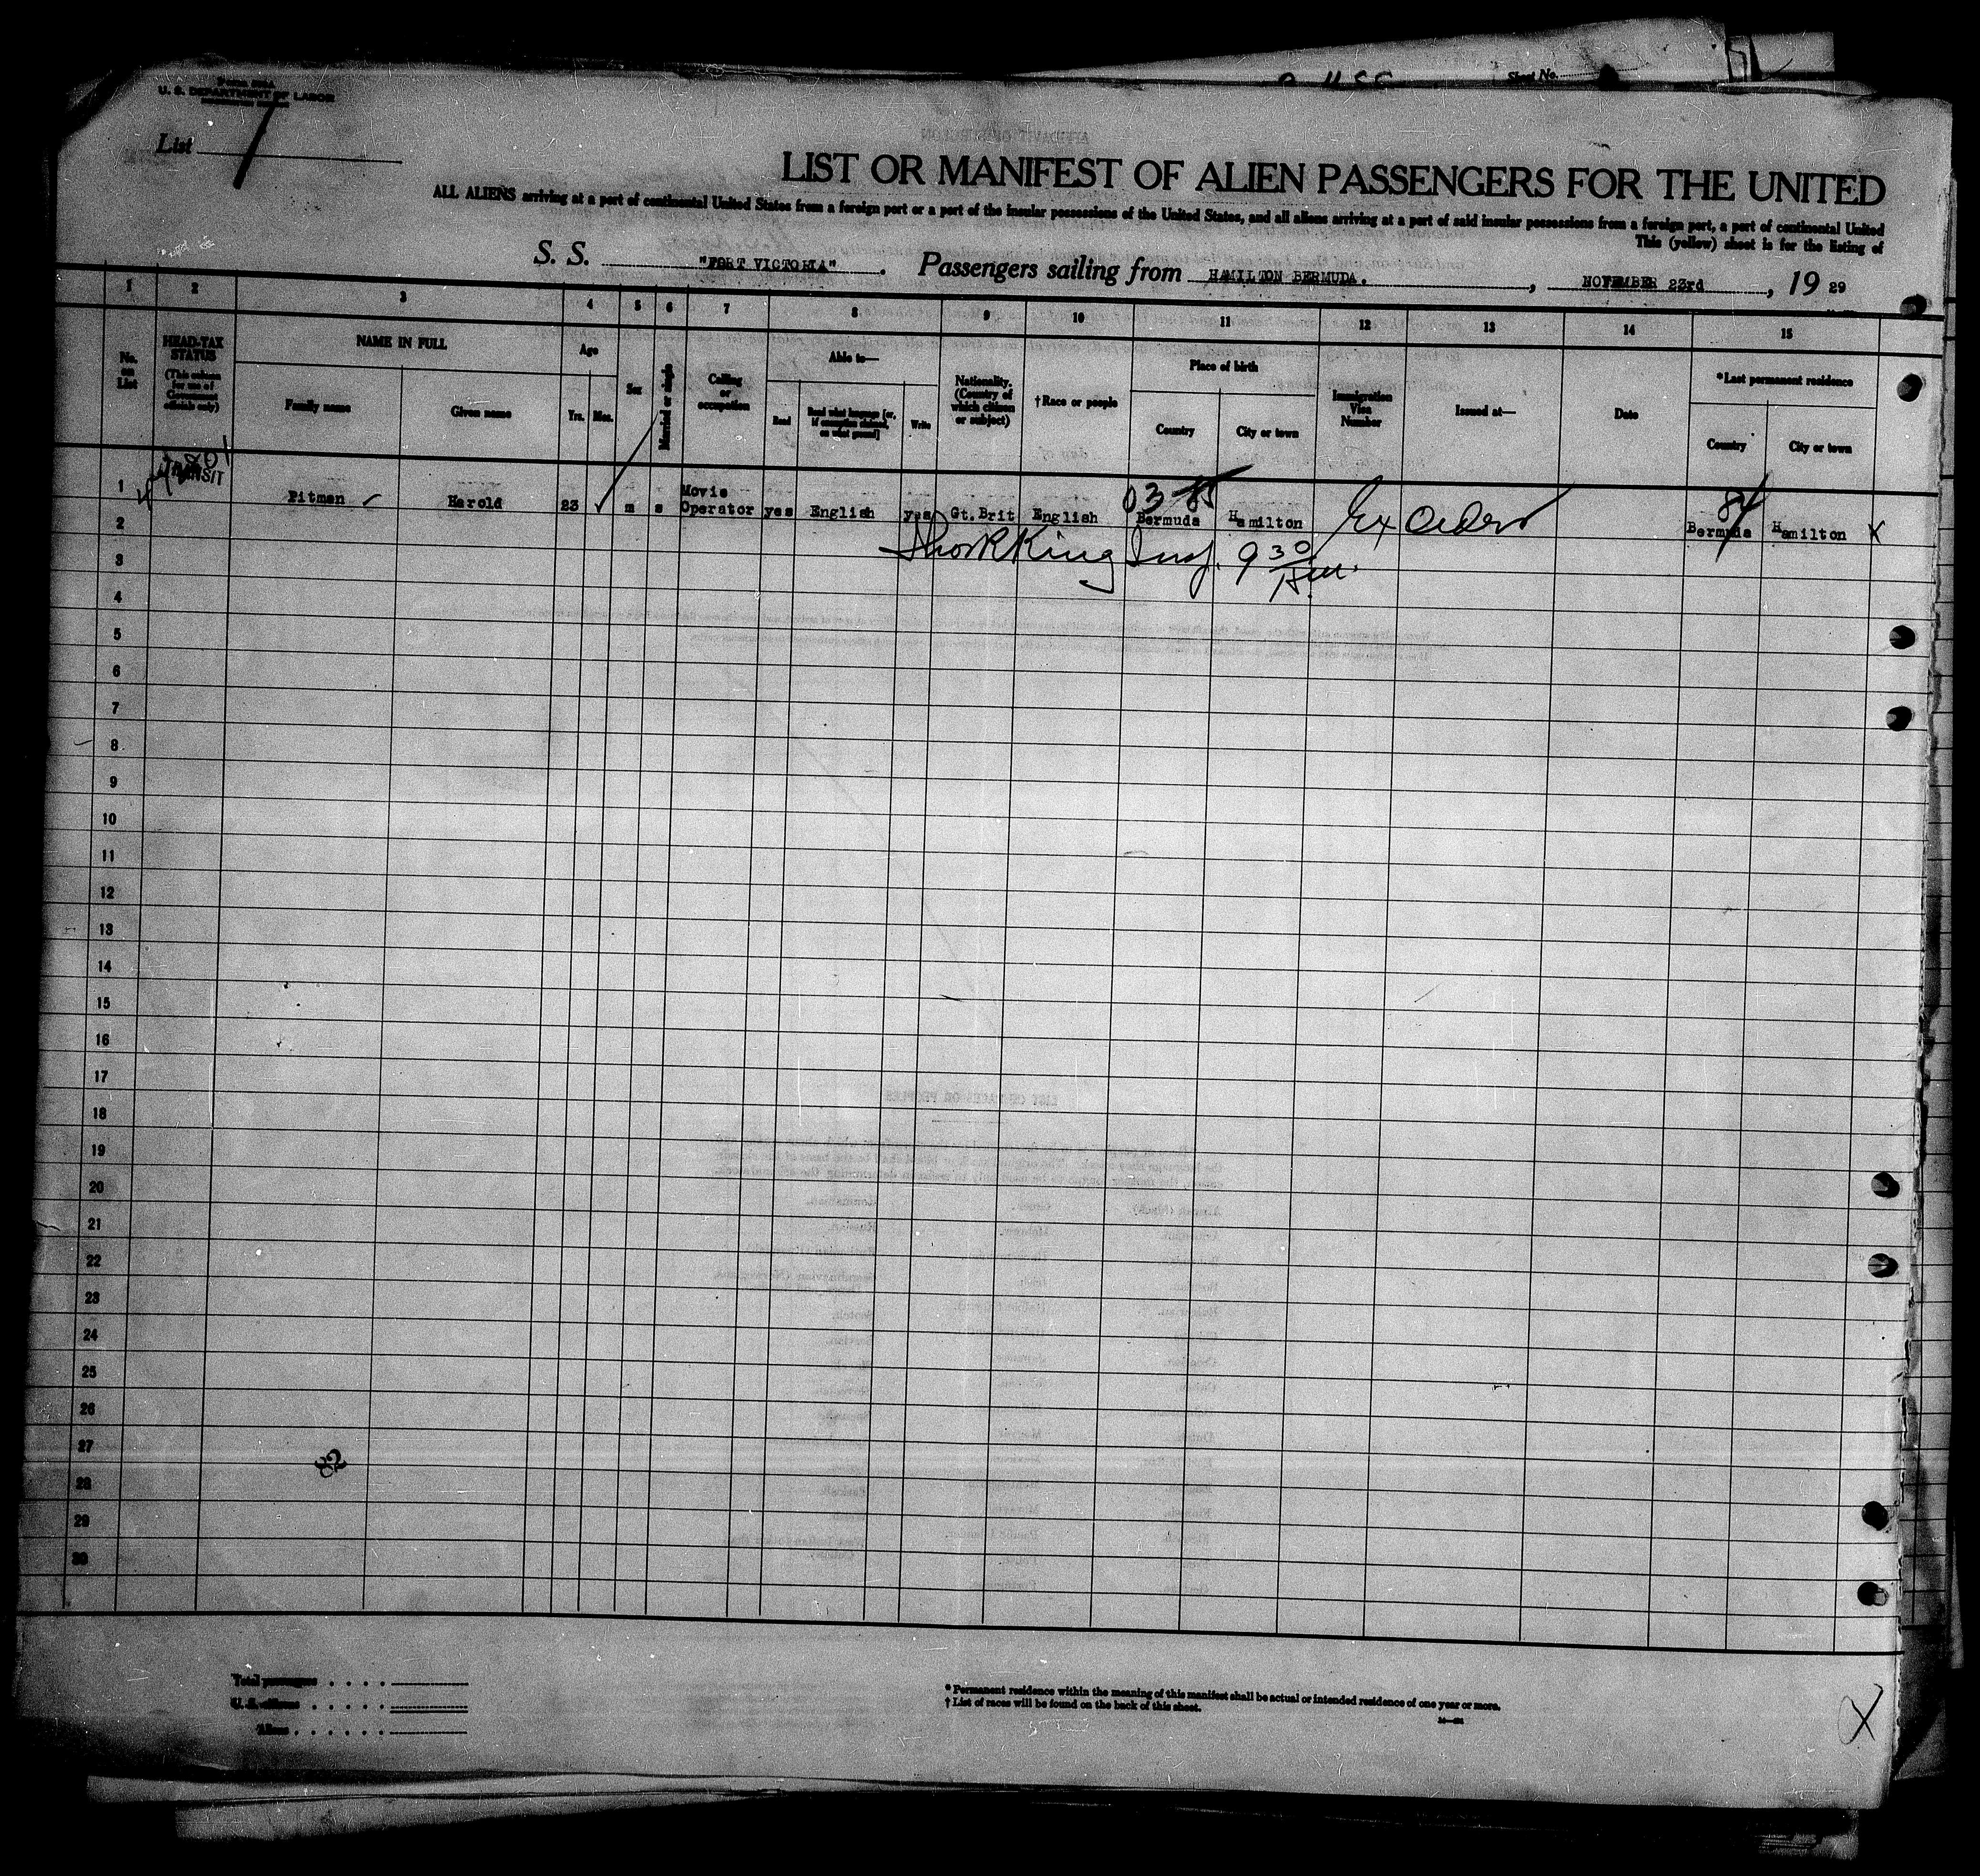 Sheet No.
U. S. DEPARTMENT OF LABOR
List 1
LIST OR MANIFEST OF ALIEN PASSENGERS FOR THE UNITED
ALL ALIENS arriving at a port of continental United States from a foreign port or a port of the insular possessions of the United States, and all aliens arriving at a port of said insular possessions from a foreign port, a port of continental United
This (yellow) sheet is for the listing of
S. S. "FORT VICTORIA". Passengers sailing from HAMILTON BERMUDA. , NOVEMBER 23rd , 19 29
1 2 3 4 5 6 7 8 9 10 11 12 13 14 15
No. on List
HEAD-TAX STATUS (This column for use of Government officials only)
NAME IN FULL
Family name
Given name
Age
Yrs. Mos.
Sex
Married or single
Calling or occupation
Able to—
Read
Read what language [or, if exemption claimed, on what ground]
Write
Nationality. (Country of which citizen or subject)
†Race or people
Place of birth
Country
City or town
Immigration Visa Number
Issued at—
Date
*Last permanent residence
Country
City or town
TRANSIT
1 Pitman Harold 23 m s Movie Operator yes English yes Gt.Brit English 03 Bermuda Hamilton Ex 84 Bermuda Hamilton X
2
King Insp. 9 30
3
4
5
6
7
8
9
10
11
12
13
14
15
16
17
18
19
20
21
22
23
24
25
26
27
28
29
30
82
Total passengers
U. S. citizens
Aliens
* Permanent residence within the meaning of this manifest shall be actual or intended residence of one year or more.
† List of races will be found on the back of this sheet.
X